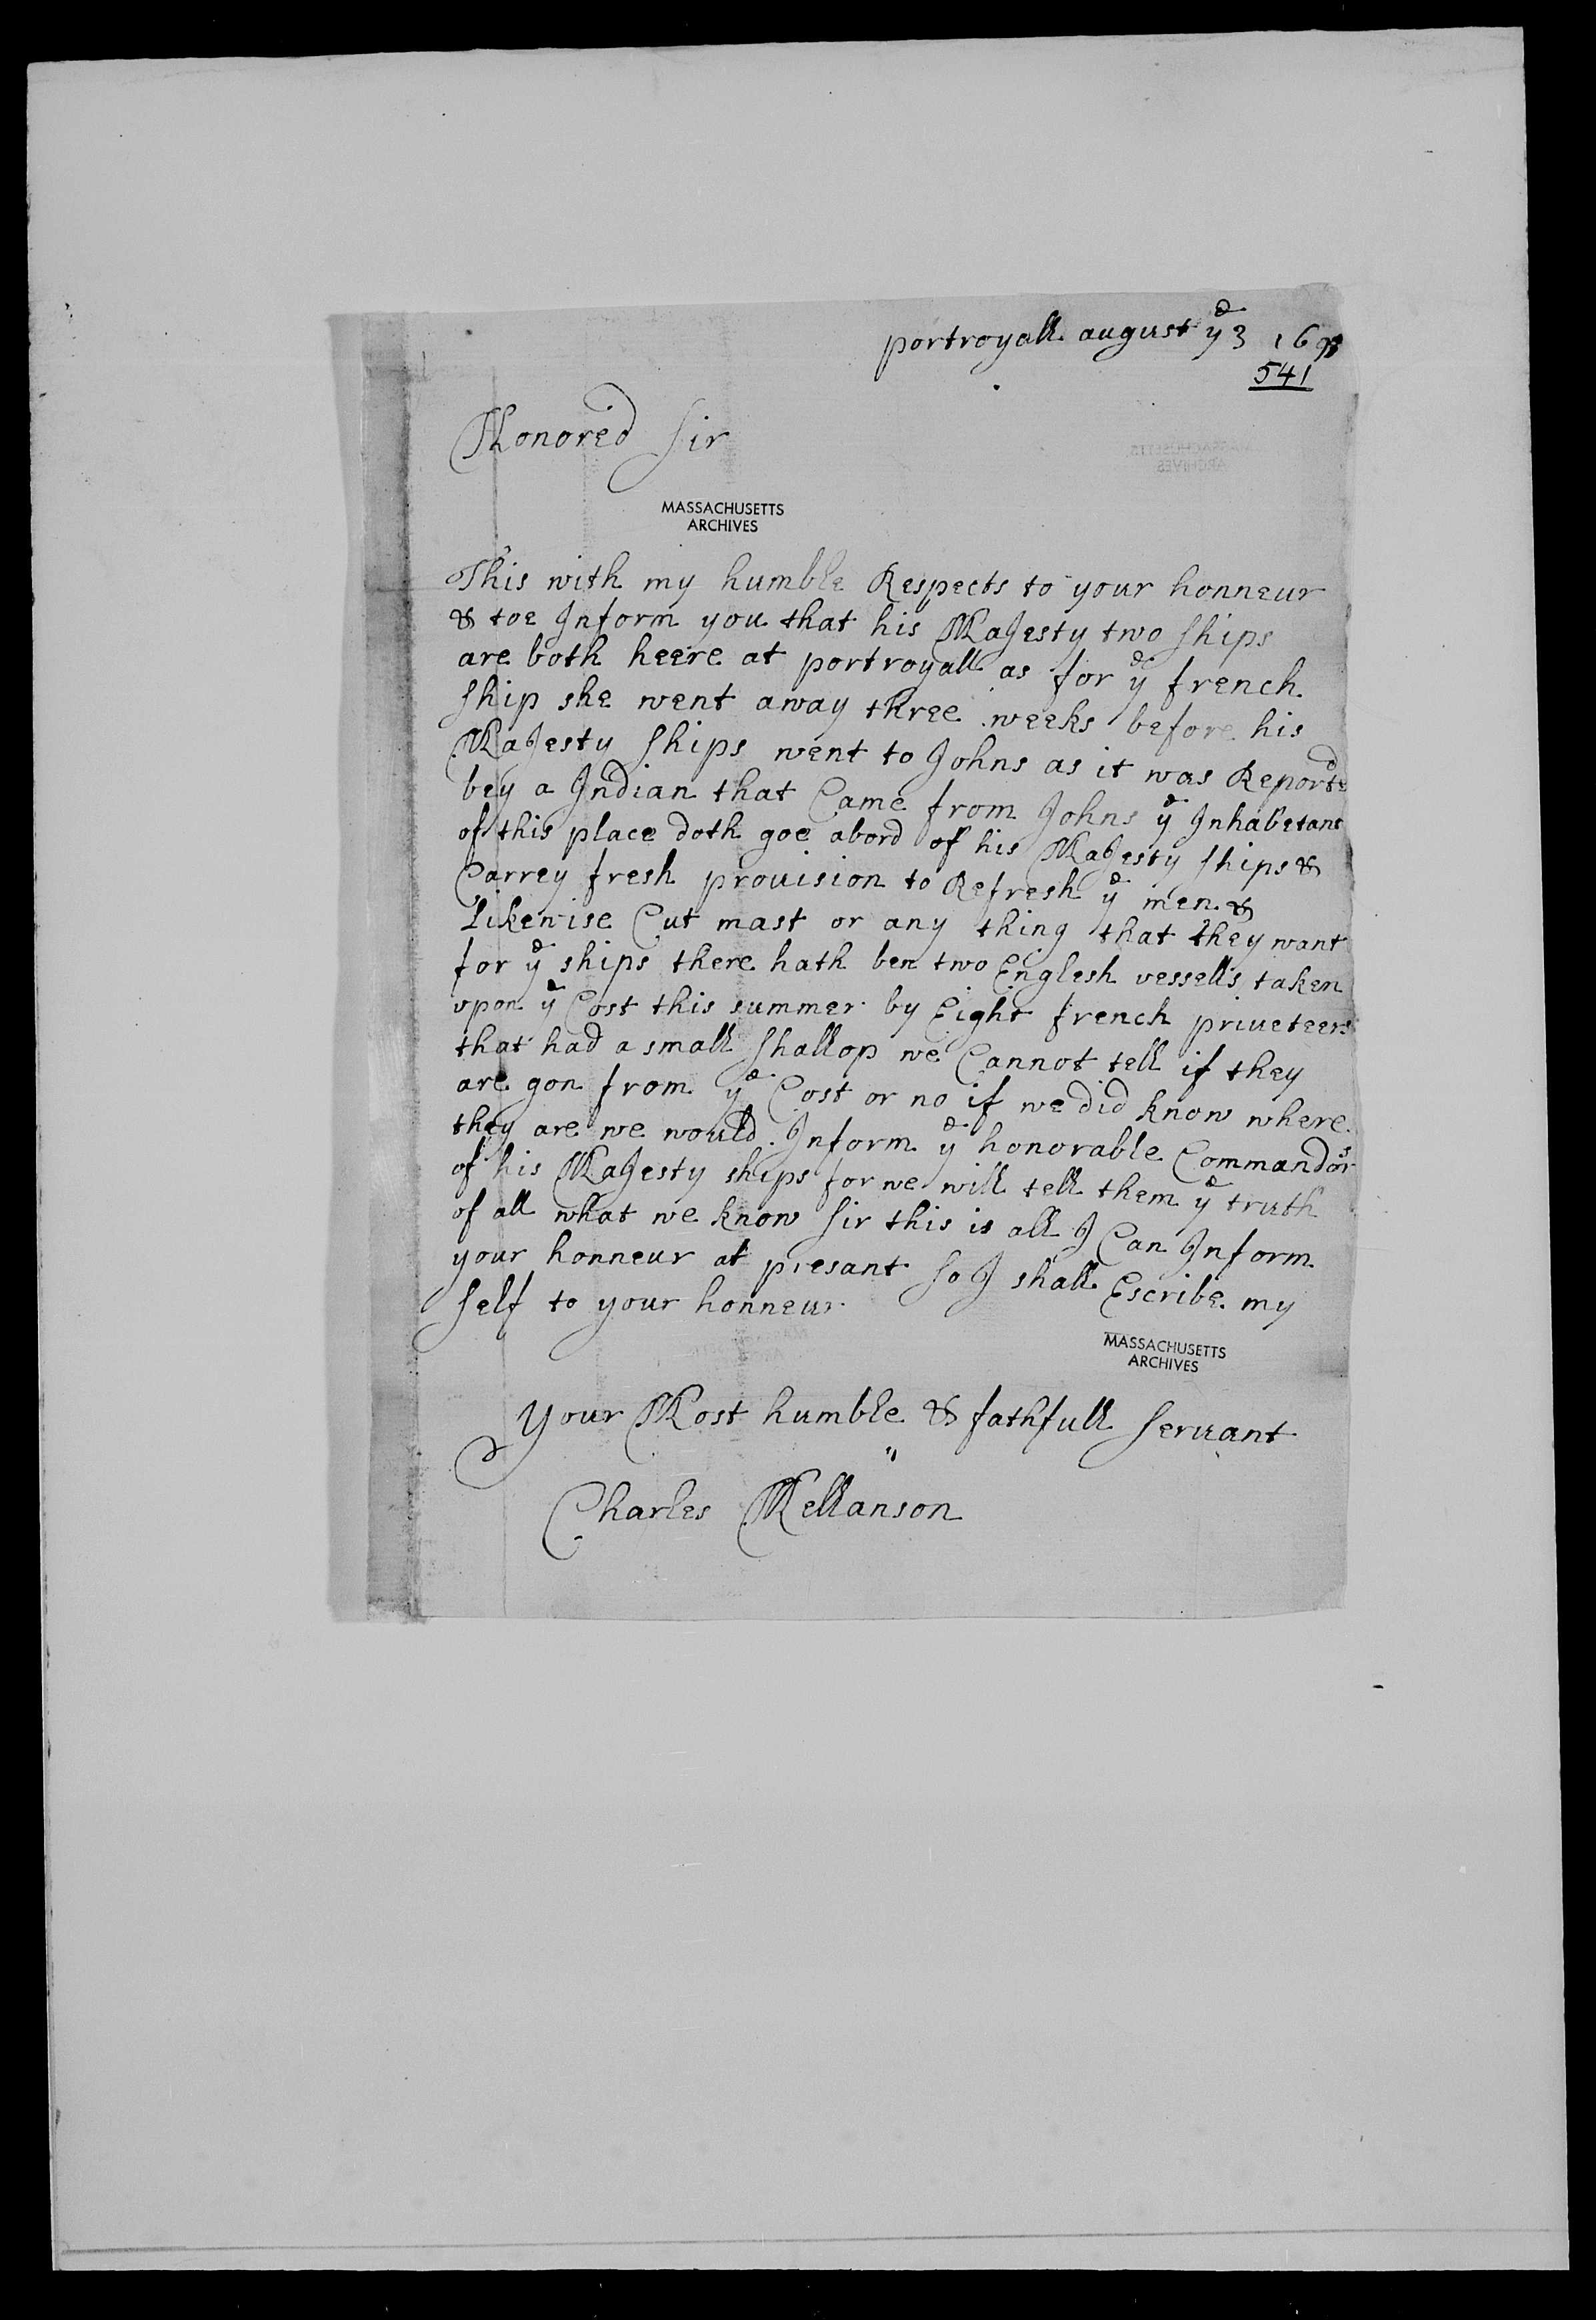 portroyall august yͤ 3 169
541
Honored Sir
MASSACHUSETTS
ARCHIVES
This with my humble Respects to your honneur
& toe Inform you that his MaJesty two Ships
are both heere at portroyall as for yͤ french
Ship she went away three weeks before his
MaJesty Ships went to Johns as it was Reported
bey a Indian that Came from Johns yͤ Inhabetant
of this place doth goe abord of his MaJesty Ships &
Carrey fresh prouision to Refresh yͤ men &
Likewise Cut mast or any thing that they want
for yͤ ships there hath ben two Englesh vessells taken
vpon yͤ Cost this summer by Eight french priueteers
that had a small Shallop we Cannot tell if they
are gon from yͤ Cost or no if we did know where
they are we would Inform yͤ honorable Commandors
of his MaJesty ships for we will tell them yͤ truth
of all what we know Sir this is all I Can Inform
your honneur at presant So I shall Escribe my
Self to your honneur
MASSACHUSETTS
ARCHIVES
Your Most humble & fathfull Seruant
Charles Mellanson